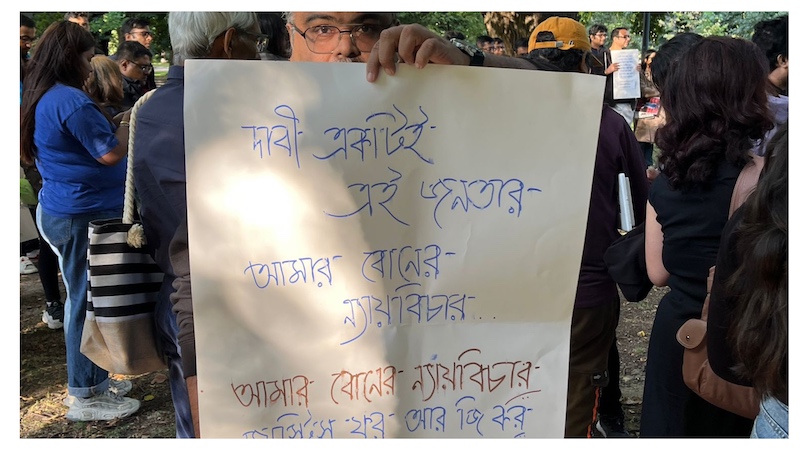 দাবী একটাই
এই জনতার
আমার বোনের
ন্যায়বিচার...
আমার বোনের ন্যায়বিচার
জাস্টিস ফর আর জি কর